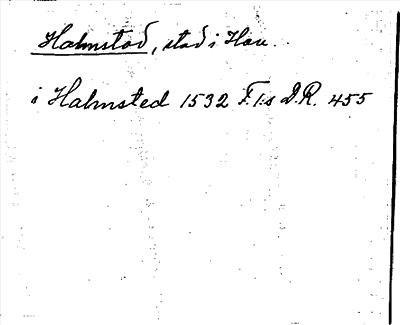 Halmstad, stad i Hall.
i Halmsted 1532 F.I:s D.R. 455